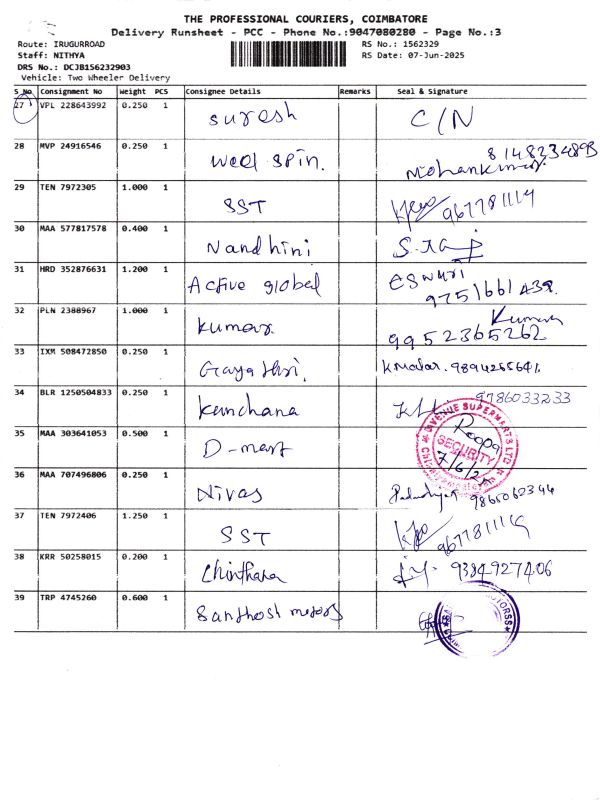 THE PROFESSIONAL COURIERS, COIMBATORE
Delivery Runsheet - PCC - Phone No.:9047080280 - Page No.:3
Route: IRUGURROAD RS No.: 1562329
Staff: NITHYA RS Date: 07-Jun-2025
DRS No.: DCJB156232903
Vehicle: Two Wheeler Delivery
S No. Consignment No Weight PCS Consignee Details Remarks Seal & Signature
27 VPL 228643992 0.250 1 suresh C/N
28 MVP 24916546 0.250 1 Weel spin. 8148234893
Mohankumar
29 TEN 7972305 1.000 1 SST 9677811119
30 MAA 577817578 0.400 1 Nandhini
31 HRD 352876631 1.200 1 Active global ESWARI
9751661439
32 PLN 2388967 1.000 1 kumar Kumar
9952365262
33 IXM 508472850 0.250 1 Gayathri. K Malar. 9894265641.
34 BLR 1250504833 0.250 1 kanchana 9786033233
35 MAA 303641053 0.500 1 D-mart AVENUE SUPERMARTS LTD
SECURITY
Roopa
7/6/25
36 MAA 707496806 0.250 1 Nivas 9865062344
37 TEN 7972406 1.250 1 SST 9677811119
38 KRR 50258015 0.200 1 Chinthana 9384927406
39 TRP 4745260 0.600 1 Santhosh motors